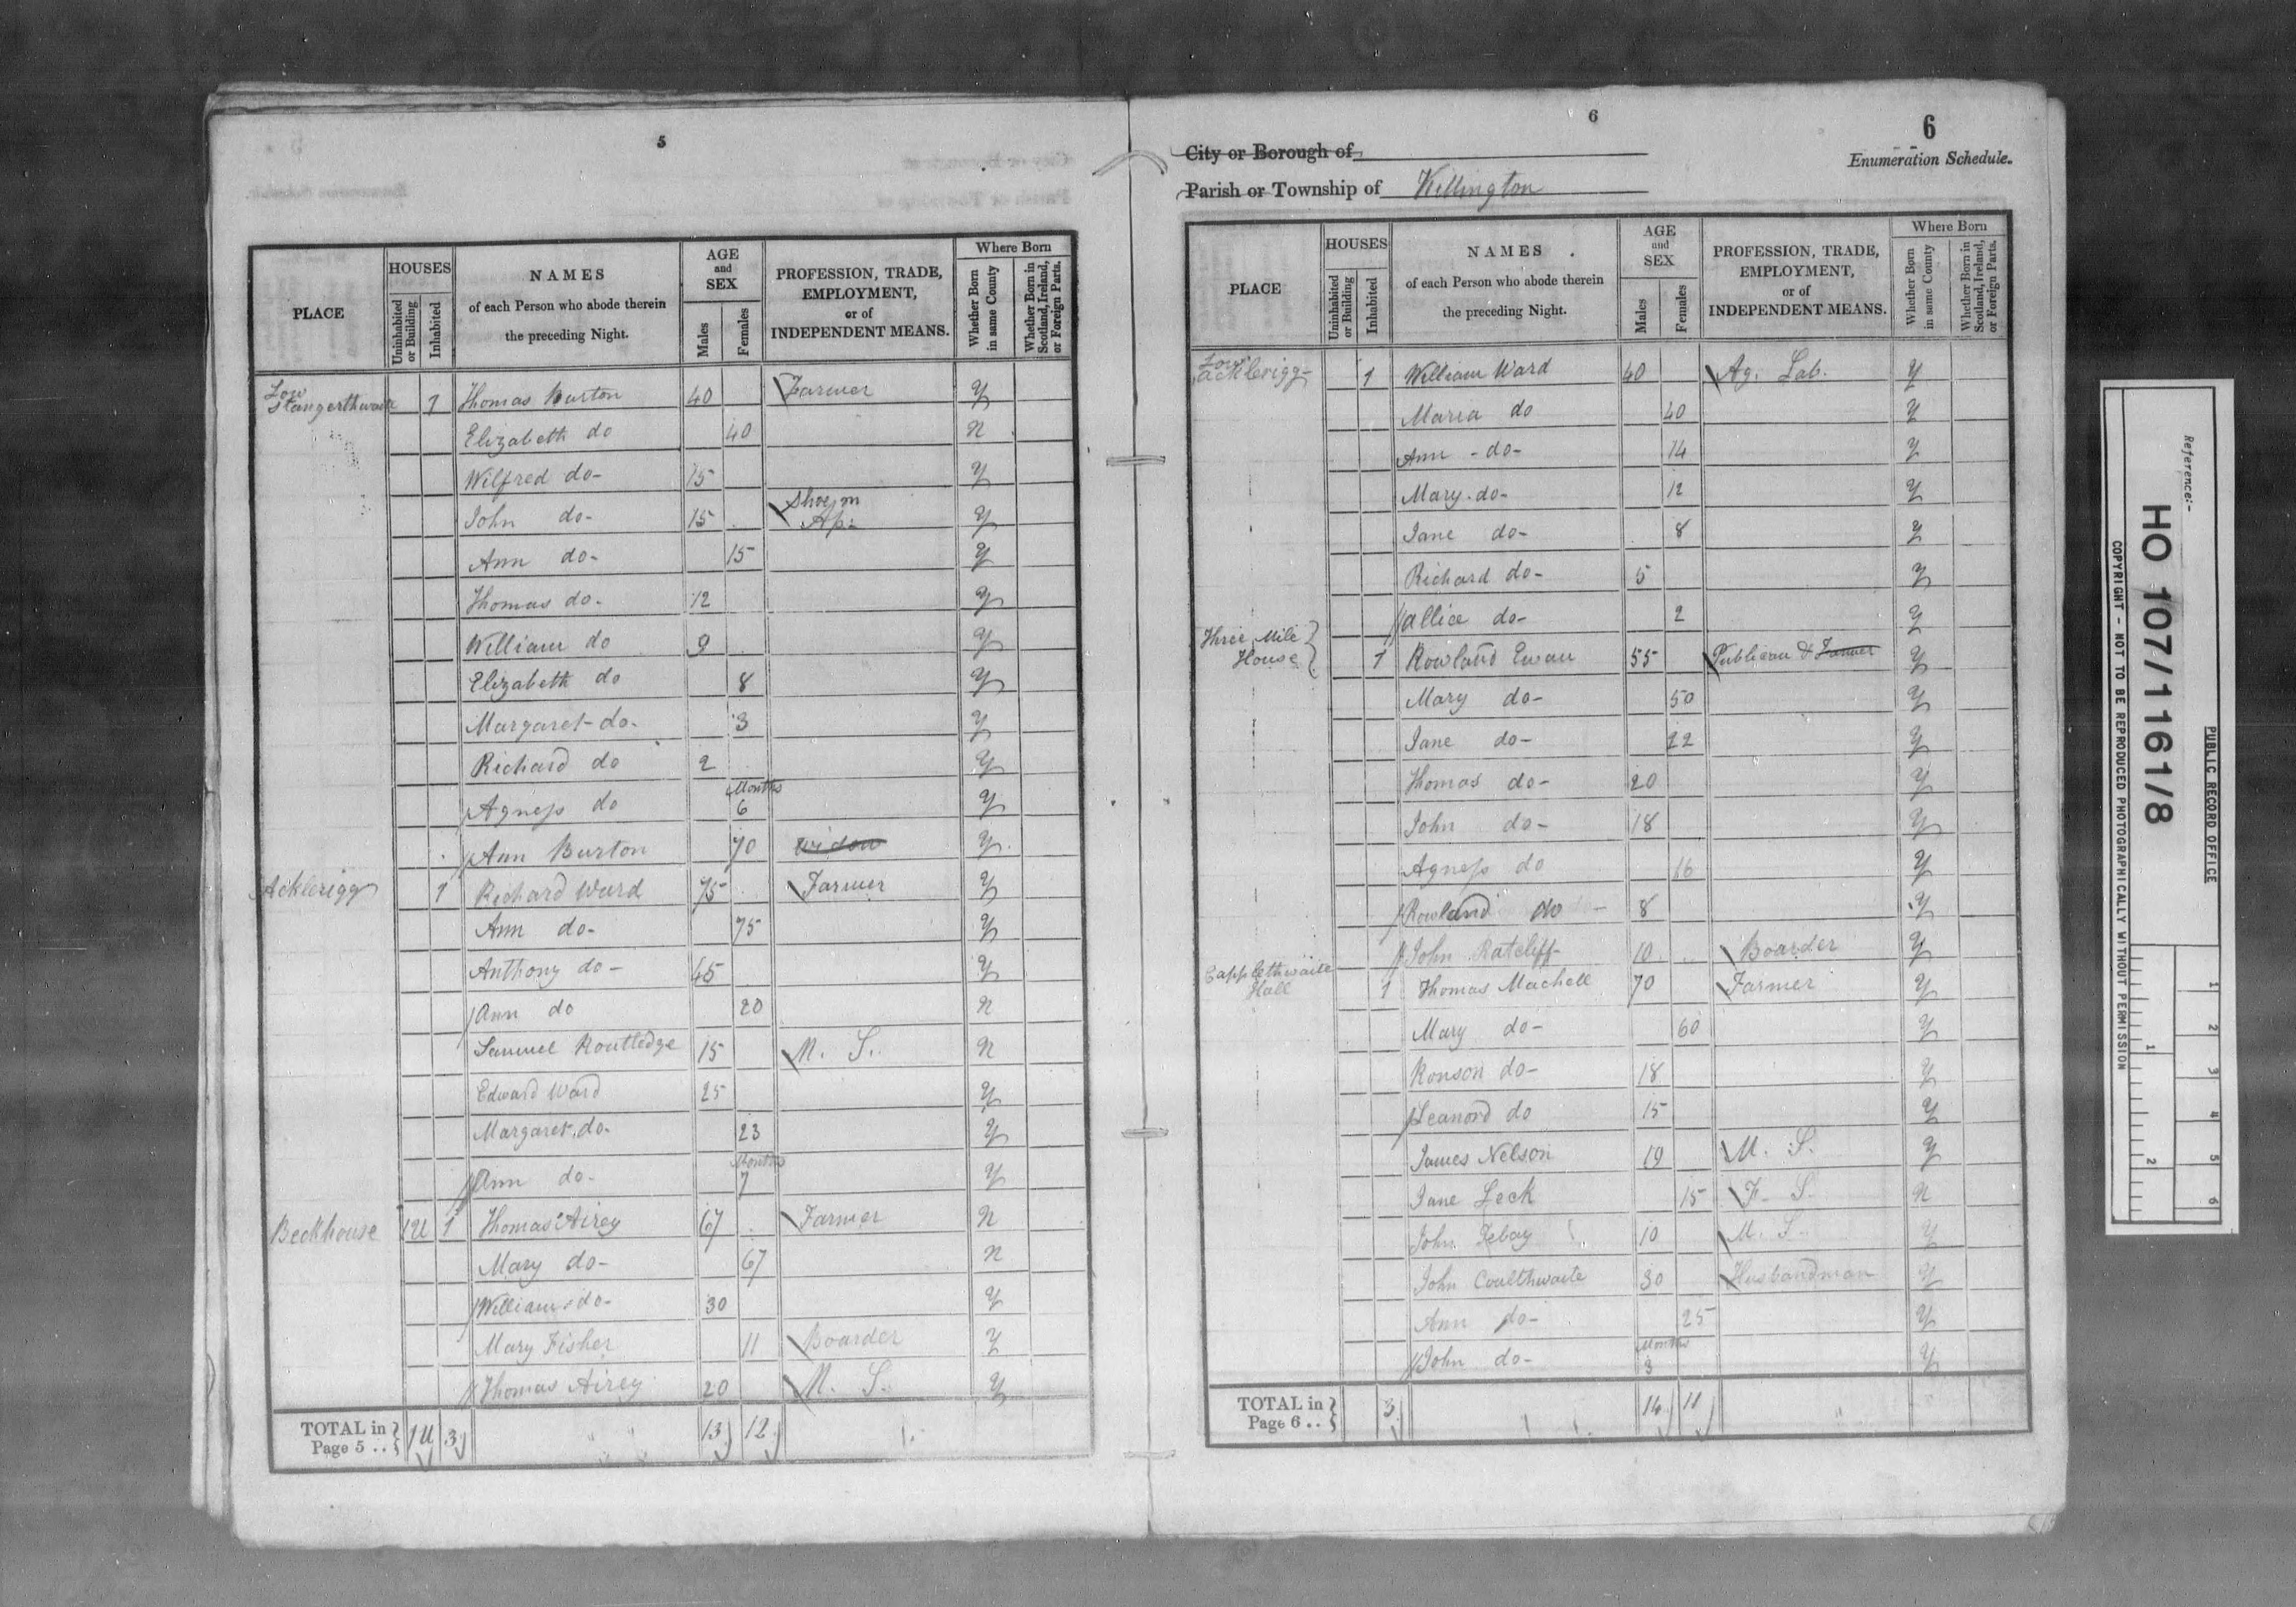 5
PLACE
HOUSES
Uninhabited or Building
Inhabited
NAMES
of each Person who abode therein
the preceding Night.
AGE
and
SEX
Males
Females
PROFESSION, TRADE,
EMPLOYMENT,
or of
INDEPENDENT MEANS.
Where Born
Whether Born in same County
Whether Born in Scotland, Ireland, or Foreign Parts.
Low Stangerthwaite 1 Thomas Burton 40 Farmer Y
Elizabeth do 40 N
Wilfred do- 15 Y
John do- 15 Shoe m Ap: Y
Ann do- 15 Y
Thomas do- 12 Y
William do 9 Y
Elizabeth do 8 Y
Margaret do- 3 Y
Richard do 2 Y
Agness do Months 6 Y
Ann Burton 70 Widow Y
Acklerigg 1 Richard Ward 75 Farmer Y
Ann do- 75 Y
Anthony do- 45 Y
Ann do 20 N
Samuel Routledge 15 M. S. N
Edward Ward 25 Y
Margaret do- 23 Y
Ann do- Months 7 Y
Beckhouse 1U 1 Thomas Airey 67 Farmer N
Mary do- 67 N
William do- 30 Y
Mary Fisher 11 Boarder Y
Thomas Airey 20 M. S. Y
TOTAL in Page 5 .. } 1U 3 13 12
6
6
City or Borough of
Enumeration Schedule.
Parish or Township of Killington
PLACE
HOUSES
Uninhabited or Building
Inhabited
NAMES
of each Person who abode therein
the preceding Night.
AGE
and
SEX
Males
Females
PROFESSION, TRADE,
EMPLOYMENT,
or of
INDEPENDENT MEANS.
Where Born
Whether Born in same County
Whether Born in Scotland, Ireland, or Foreign Parts.
Low Acklerigg 1 William Ward 40 Ag. Lab. Y
Maria do 40 Y
Ann - do- 14 Y
Mary do- 12 Y
Jane do- 8 Y
Richard do- 5 Y
Allice do- 2 Y
Three Mile House } 1 Rowland Ewan 55 Publican & Farmer Y
Mary do- 50 Y
Jane do- 22 Y
Thomas do- 20 Y
John do- 18 Y
Agness do 16 Y
Rowland do - 8 Y
John Ratcliff 10 Boarder Y
Capplethwaite Hall 1 Thomas Machell 70 Farmer Y
Mary do- 60 Y
Ronson do- 18 Y
Leanord do 15 Y
James Nelson 19 M. S. Y
Jane Leck 15 F. S. N
John Tebay 10 M. S. Y
John Coulthwaite 30 Husbandman Y
Ann do- 25 Y
John do- Months 3 Y
TOTAL in Page 6 .. } 3 14 11
Reference:-
HO 107/1161/8
PUBLIC RECORD OFFICE
COPYRIGHT - NOT TO BE REPRODUCED PHOTOGRAPHICALLY WITHOUT PERMISSION
1 2 3 4 5 6
1 2